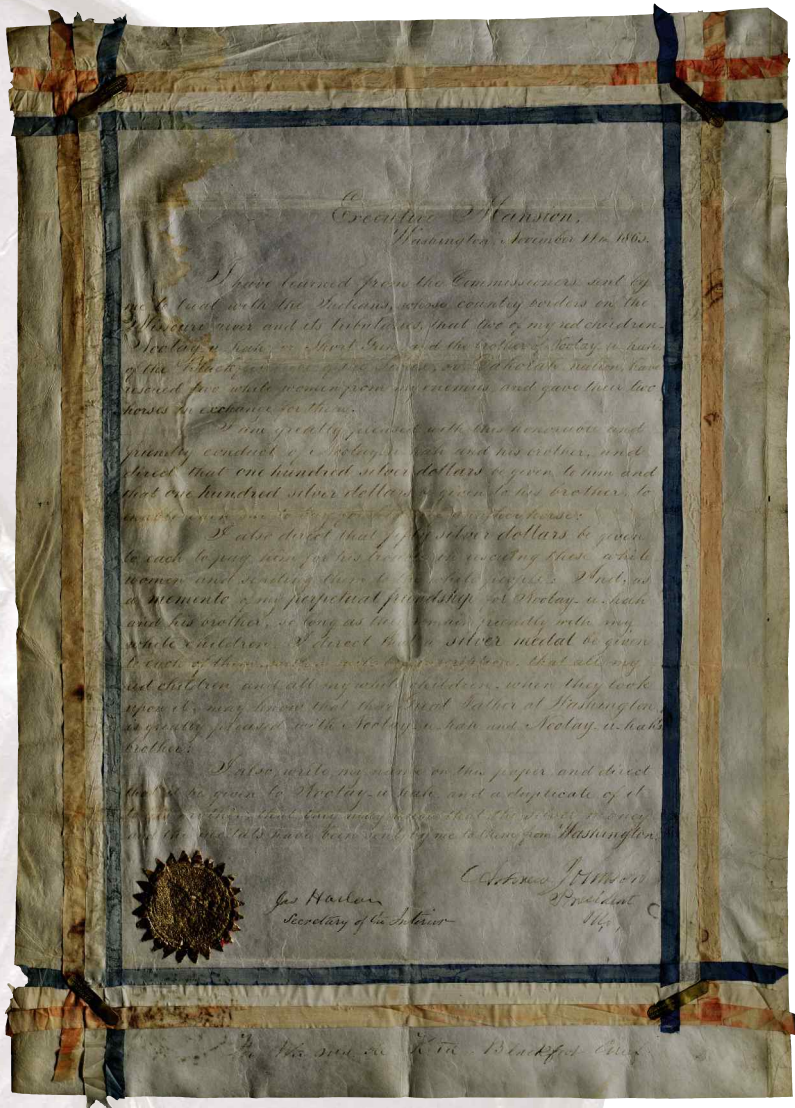 Executive Mansion,
Washington, November 14th 1865.
I have learned from the Commissioners sent by
me to treat with the Indians, whose country borders on the
Missouri river and its tributaries, that two of my red children
or Short Gun and the brother of
of the of the or Dakotah nation, have
rescued two white women from my enemies and gave their two
horses in exchange for them.
I am greatly pleased with this honorable and
friendly conduct of and his brother, and
direct that one hundred silver dollars be given to him and
that one hundred silver dollars be given to his brother, to
enable each one to another horse.
I also direct that fifty silver dollars be given
to each to pay him for his trouble in rescuing these white
women and sending them to the white people. And, as
a memento of my perpetual friendship for
and his brother, so long as they remain friendly with my
white children, I direct that a silver medal be given
to each of them, that all my
red children and all my white children, when they look
upon it, may know that their Great Father at Washington
is greatly pleased with and
brother.
I also write my name on this paper and direct
that it be given to and a duplicate of it
to his brother that they may know that the silver money
and the medals have been sent by me to them from Washington.
Andrew Johnson
President
Jas Harlan
Secretary of the Interior
Blackfeet